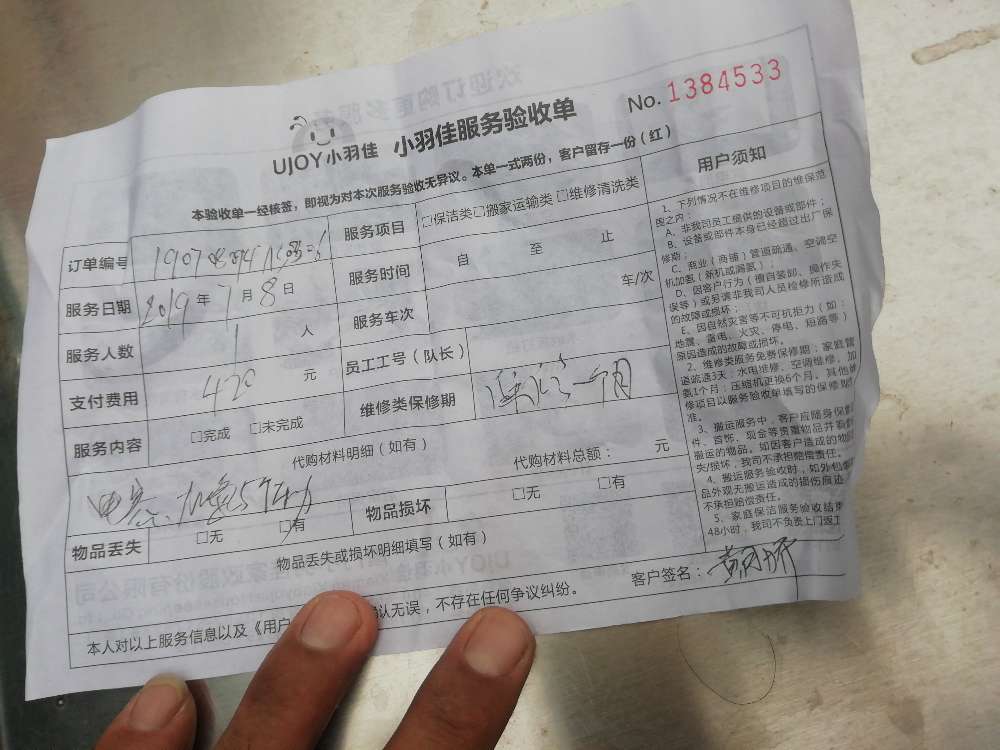 UJOY小羽佳 小羽佳服务验收单 No. 1384533
本验收单一经核签，即视为对本次服务验收无异议。本单一式两份，客户留存一份（红）
订单编号 服务项目 □保洁类□搬家运输类□维修清洗类
服务日期 2019年7月8日 服务时间 自 至 止
服务人数 1 人 服务车次 车/次
支付费用 420 元 员工工号（队长）
服务内容 □完成 □未完成 维修类保修期 一个月
代购材料明细（如有） 代购材料总额： 元
物品丢失 □无 □有 物品损坏 □无 □有
物品丢失或损坏明细填写（如有）
本人对以上服务信息以及《用户 确认无误，不存在任何争议纠纷。 客户签名：
用户须知
1、下列情况不在维修项目的维保范
围之内：
A、非我司员工提供的设备或部件；
B、设备或部件本身已经超过出厂保
修期；
C、商业（商铺）管道疏通、空调空
机加氨（新机或漏氨）；
D、因客户行为（擅自装卸、操作失
误等）或另请非我司人员检修所造成
的故障或损坏；
E、因自然灾害等不可抗拒力（如：
地震、雷电、火灾、停电、短路等）
原因造成的故障或损坏。
2、维修类服务免费保修期：家庭管
道疏通3天；水电维修、空调维修、加
氨1个月；压缩机更换6个月。其他维
修项目以服务验收单填写的保修期
准。
3、搬运服务中，客户应随身保管
件、首饰、现金等贵重物品并
搬运的物品。如因客户造成的物
失/损坏，我司不承担赔偿责任。
4、搬运服务验收时，如外包
品外观无搬运造成的损伤痕迹
不承担赔偿责任。
5、家庭保洁服务验收结束
48小时，我司不负责上门返工